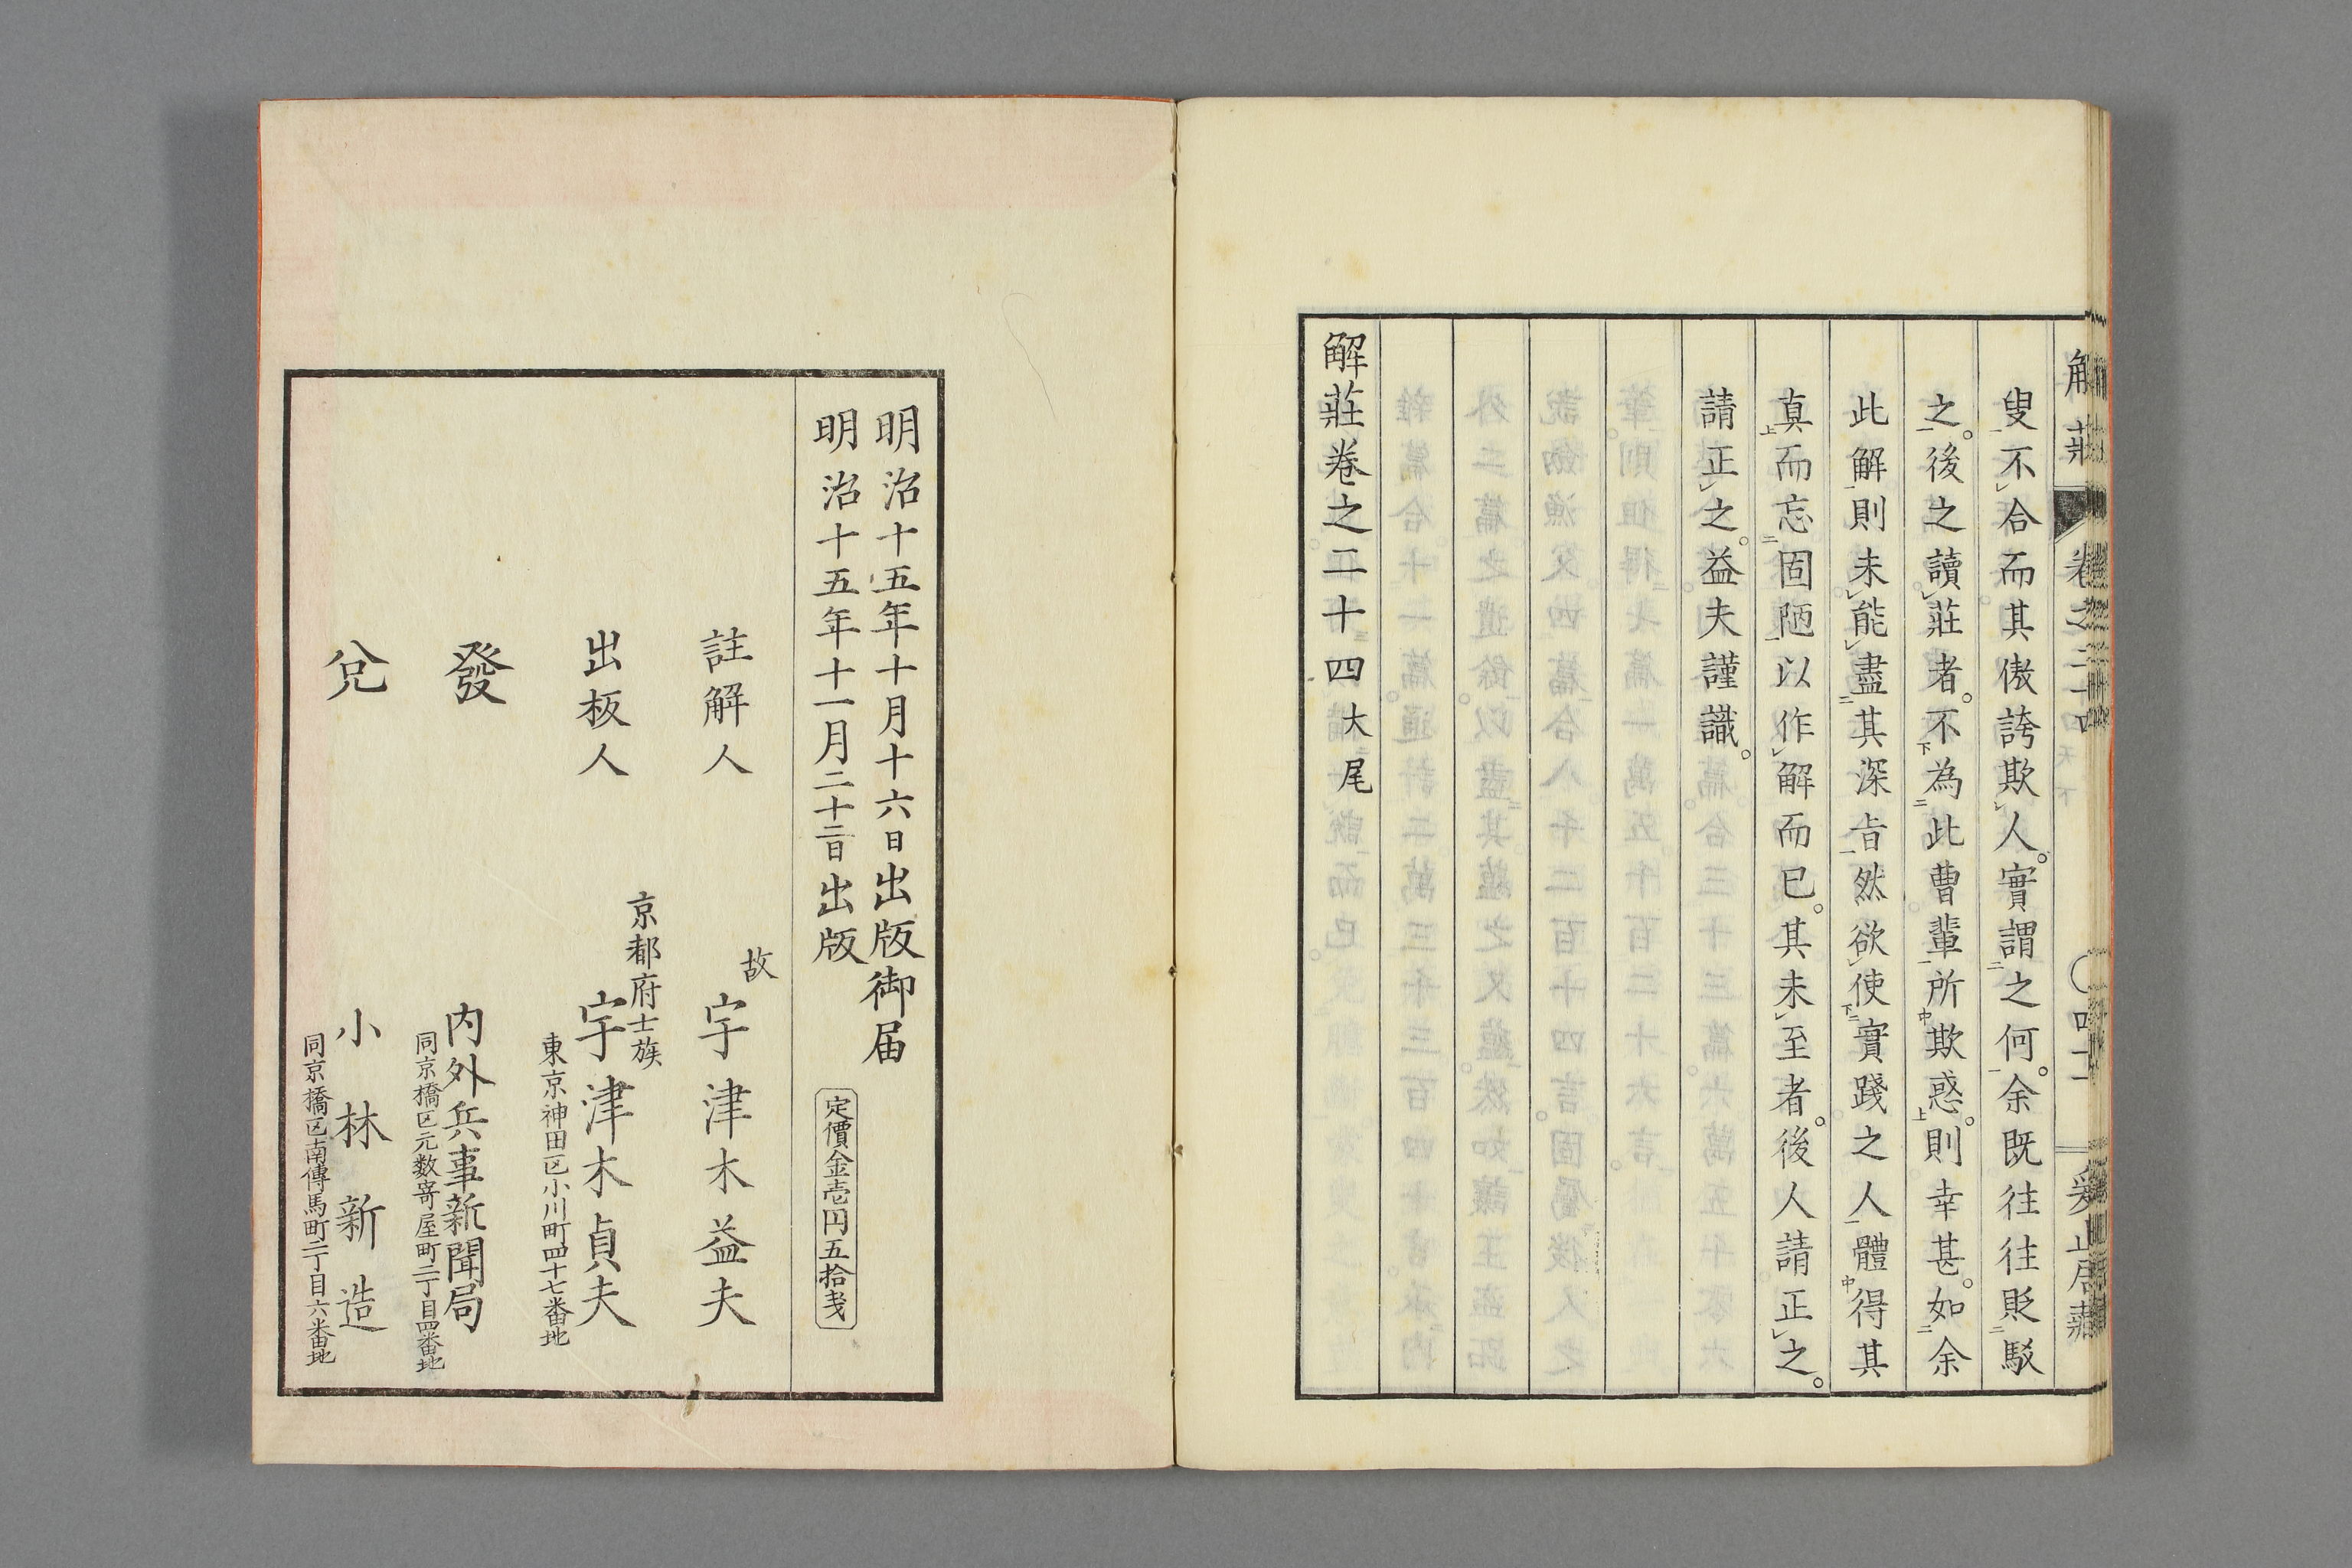 叟不合而其傲誇欺人。實謂之何。余既往往貶駁
之。後之讀莊者。不為此曹輩所欺惑。則幸甚。如余
此解則未能盡其深旨然欲使實踐之人體得其
真而忘固陋以作解而已。其未至者。後人請正之。
請正之。益夫謹識。
解莊卷之二十四大尾
明治十五年十月十六日出版御届
明治十五年十一月二十二日出版
定價金壱円五拾戔
註解人 故 宇津木益夫
京都府士族
出板人 宇津木貞夫
東京神田区小川町四十七番地
發 内外兵事新聞局
同京橋区元数寄屋町二丁目四番地
兌 小林新造
同京橋区南傳馬町二丁目六番地